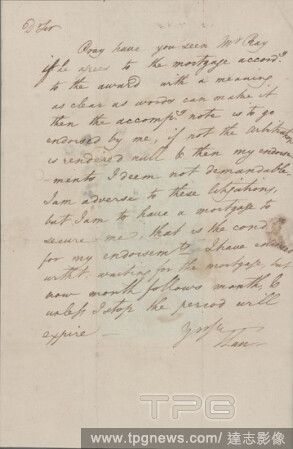 D Sir
Pray have you seen Mr Ray
if he agrees to the mortgage accordg.
to the award with a meaning
as clear as words can make it
then the accompg. note is to go
endorsed by me, if not the Arbitration
is rendered null & then my endorse
ments I deem not demandable.
I am adverse to these litigations,
but I am to have a mortgage to
secure me, that is the cond
for my endorsemts. I have endorsed
witht waiting for the mortgage, but
now month follows month, &
unless I stop the period will
expire —
Yours
TPG
www.tpgnews.com / 達志影像